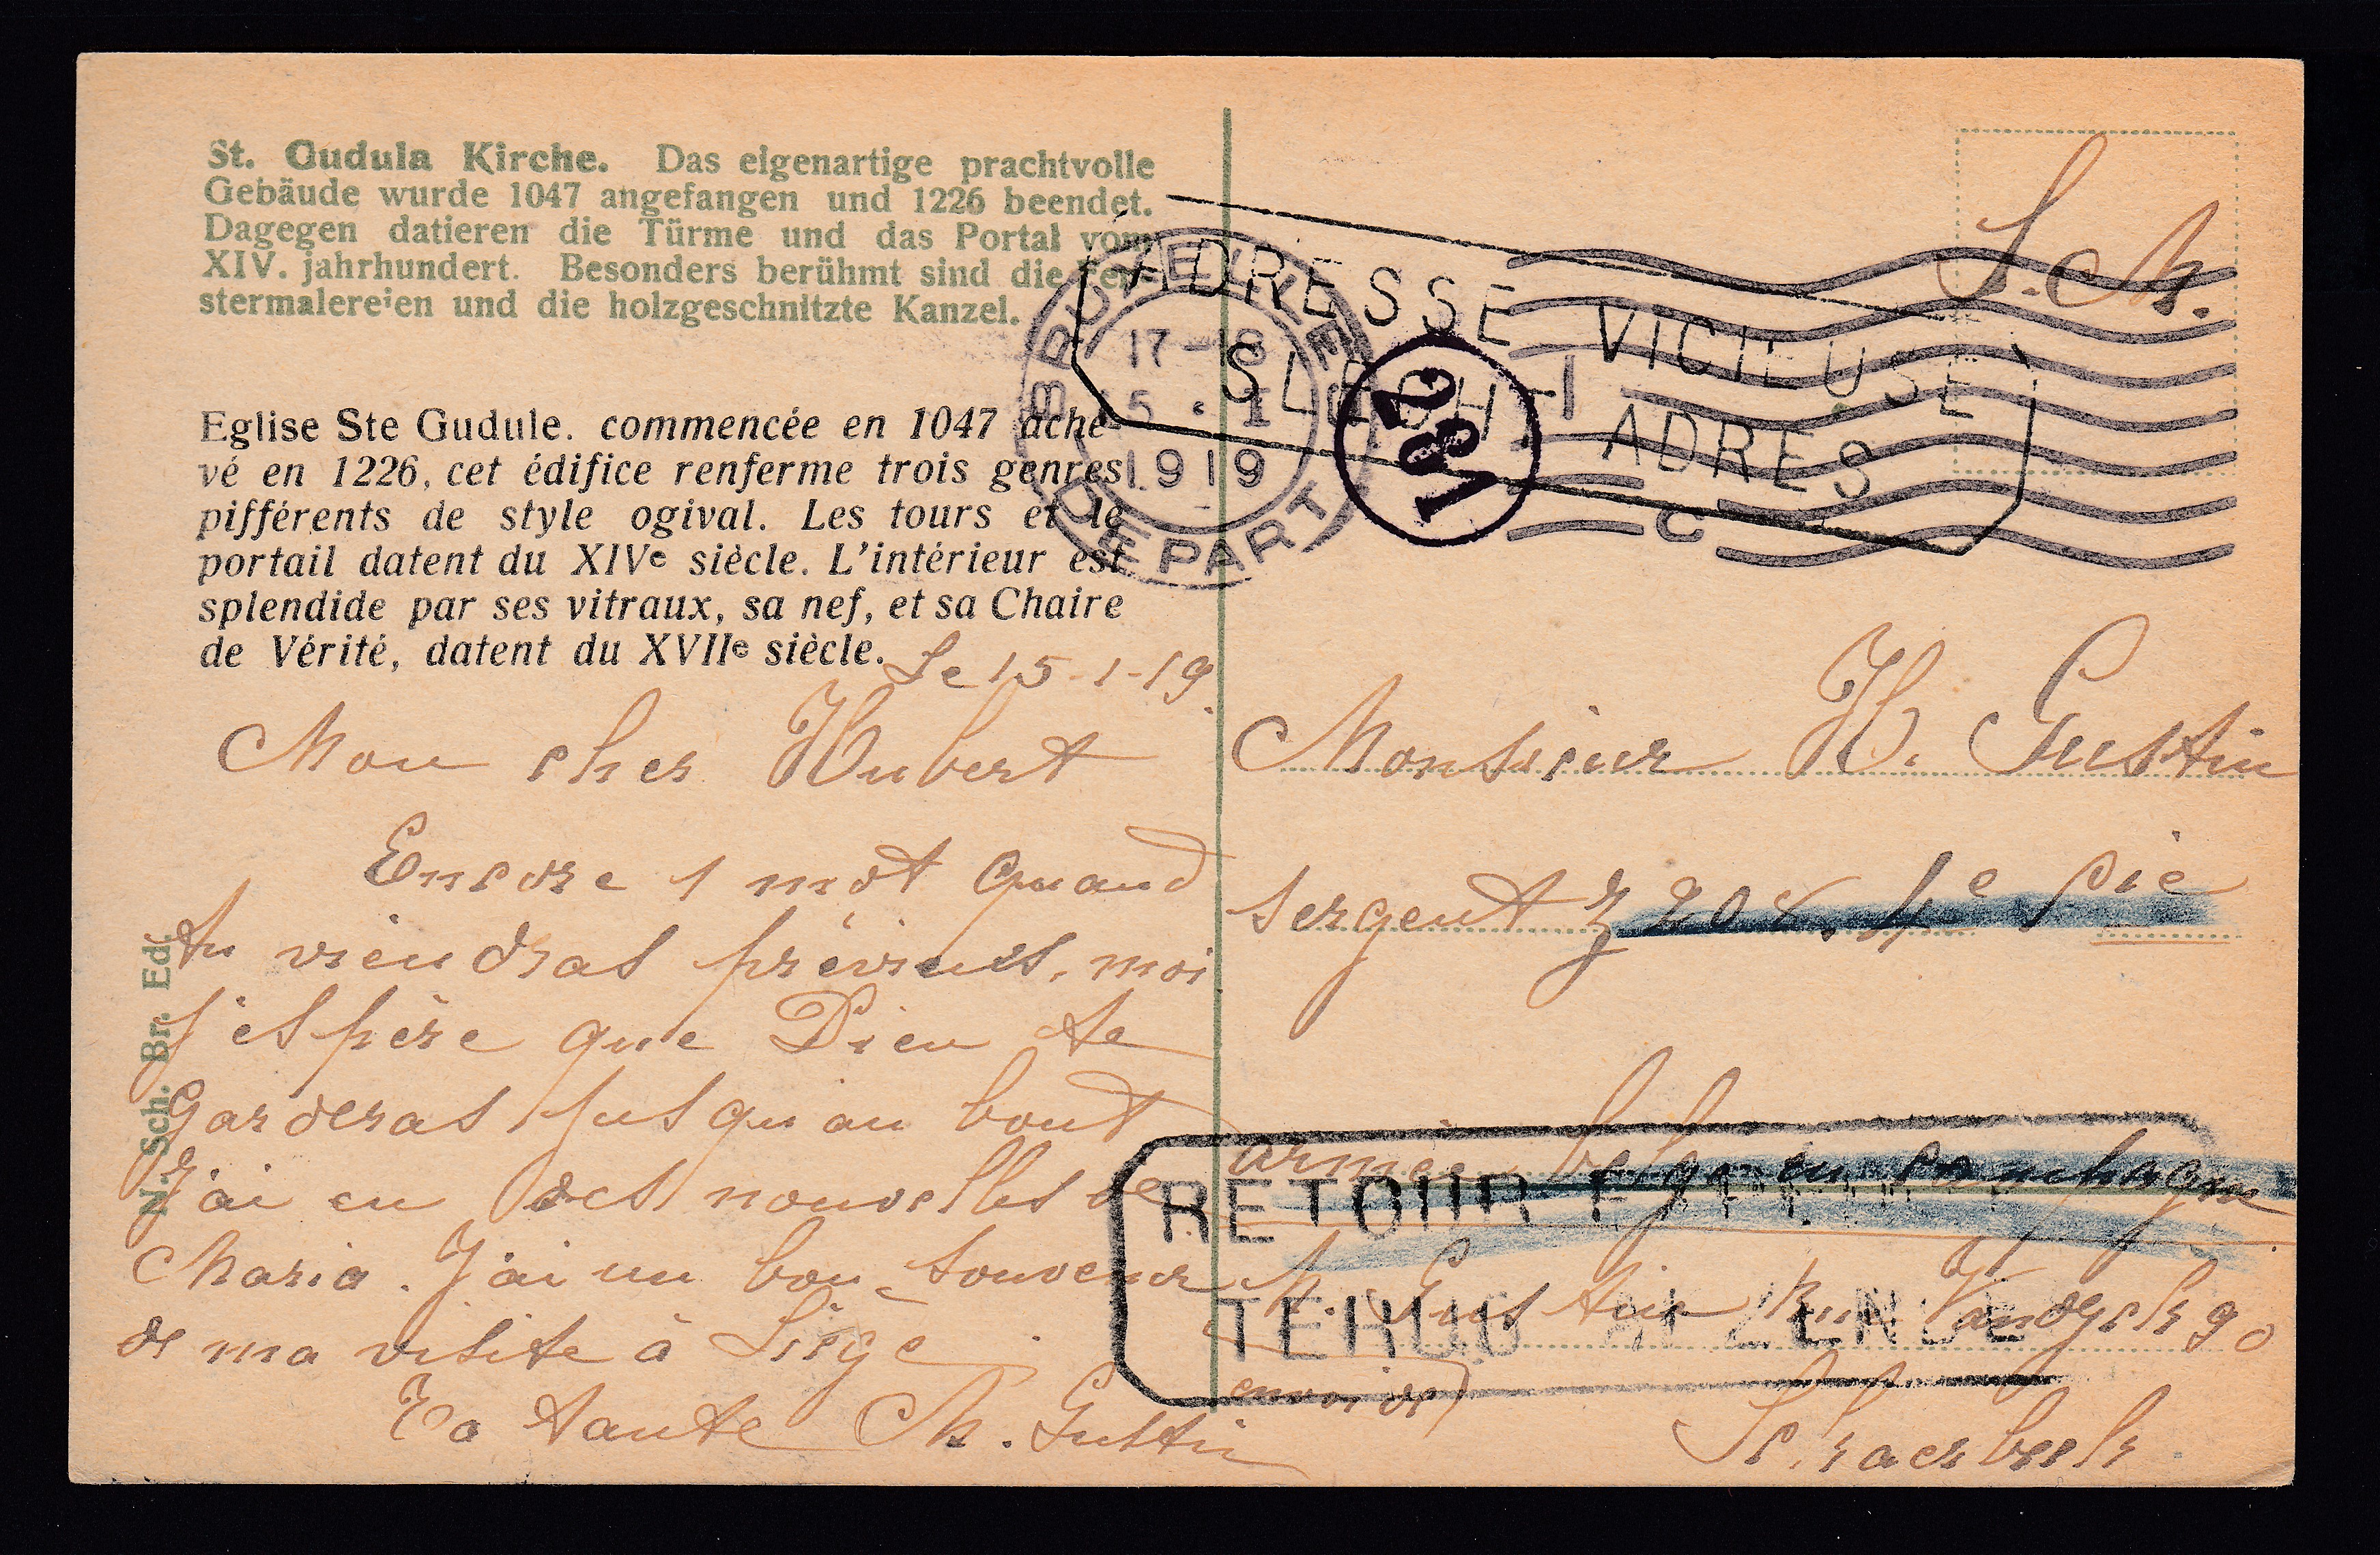 St. Gudula Kirche. Das eigenartige prachtvolle
Gebäude wurde 1047 angefangen und 1226 beendet.
Dagegen datieren die Türme und das Portal vom
XIV. jahrhundert. Besonders berühmt sind die Fen-
stermalereien und die holzgeschnitzte Kanzel.
Eglise Ste Gudule. commencée en 1047 ache-
vé en 1226, cet édifice renferme trois genres
pifférents de style ogival. Les tours et le
portail datent du XIVe siècle. L'intérieur est
splendide par ses vitraux, sa nef, et sa Chaire
de Vérité, datent du XVIIe siècle.
Le 15-1-19.
Mon cher Hubert
Encore 1 mot quand
tu viendras préviens, moi
j'espère que Dieu te
Garderas jusqu'au bout
J'ai eu des nouvelles de
Maria. J'ai un bon souvenir
de ma visite à Liège
Ta tante M. Gustin
N. Sch. Br. Ed.
S. M.
BRUXELLES
17-18
15 · I
1919
DEPART
ADRESSE VICIEUSE
SLECHT ADRES
C
182
Monsieur H. Gustin
sergent Z 208. 4e Cie
armée belge en campagne
RETOUR
TERUG AFZENDER
M. Gustin Rue 90
envoi de
Schaerbeek